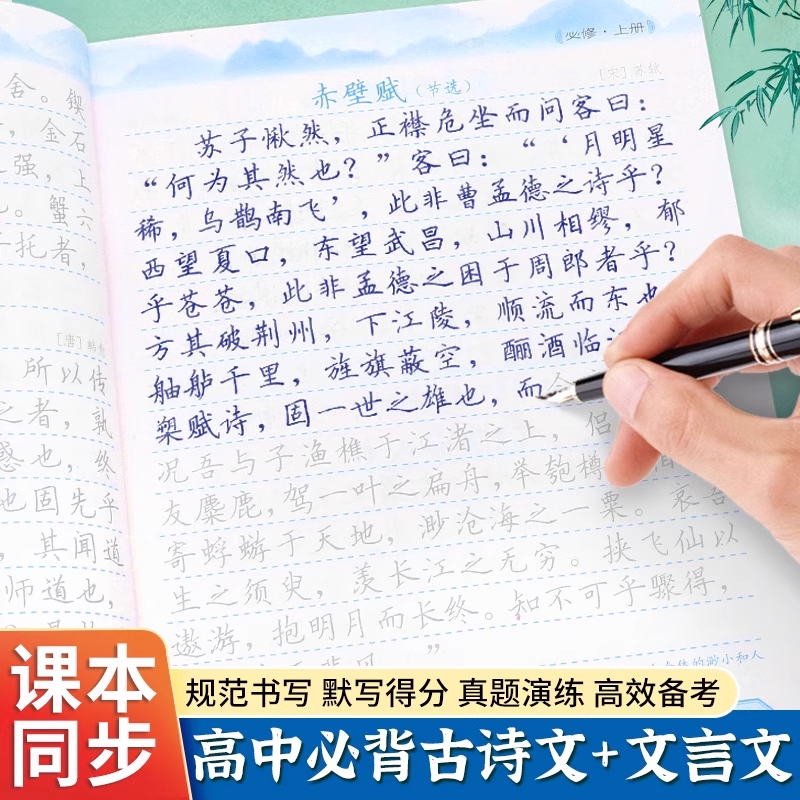 必修·上册
赤壁赋（节选）
[宋]苏轼
苏子愀然，正襟危坐而问客曰：
“何为其然也？”客曰：“‘月明星
稀，乌鹊南飞’，此非曹孟德之诗乎？
西望夏口，东望武昌，山川相缪，郁
乎苍苍，此非孟德之困于周郎者乎？
方其破荆州，下江陵，顺流而东也，
舳舻千里，旌旗蔽空，酾酒临江
槊赋诗，固一世之雄也，而
况吾与子渔樵于江渚之上，侣
友麋鹿，驾一叶之扁舟，举匏樽
寄蜉蝣于天地，渺沧海之一粟。哀吾
生之须臾，羡长江之无穷。挟飞仙以
遨游，抱明月而长终。知不可乎骤得，
舍。锲
金石
强，上
蟹六
托者，
[唐]韩愈
所以传
之者，孰
惑也，终
地固先乎
其闻道
师道也，
的渺小和人
课本
同步
规范书写 默写得分 真题演练 高效备考
高中必背古诗文+文言文